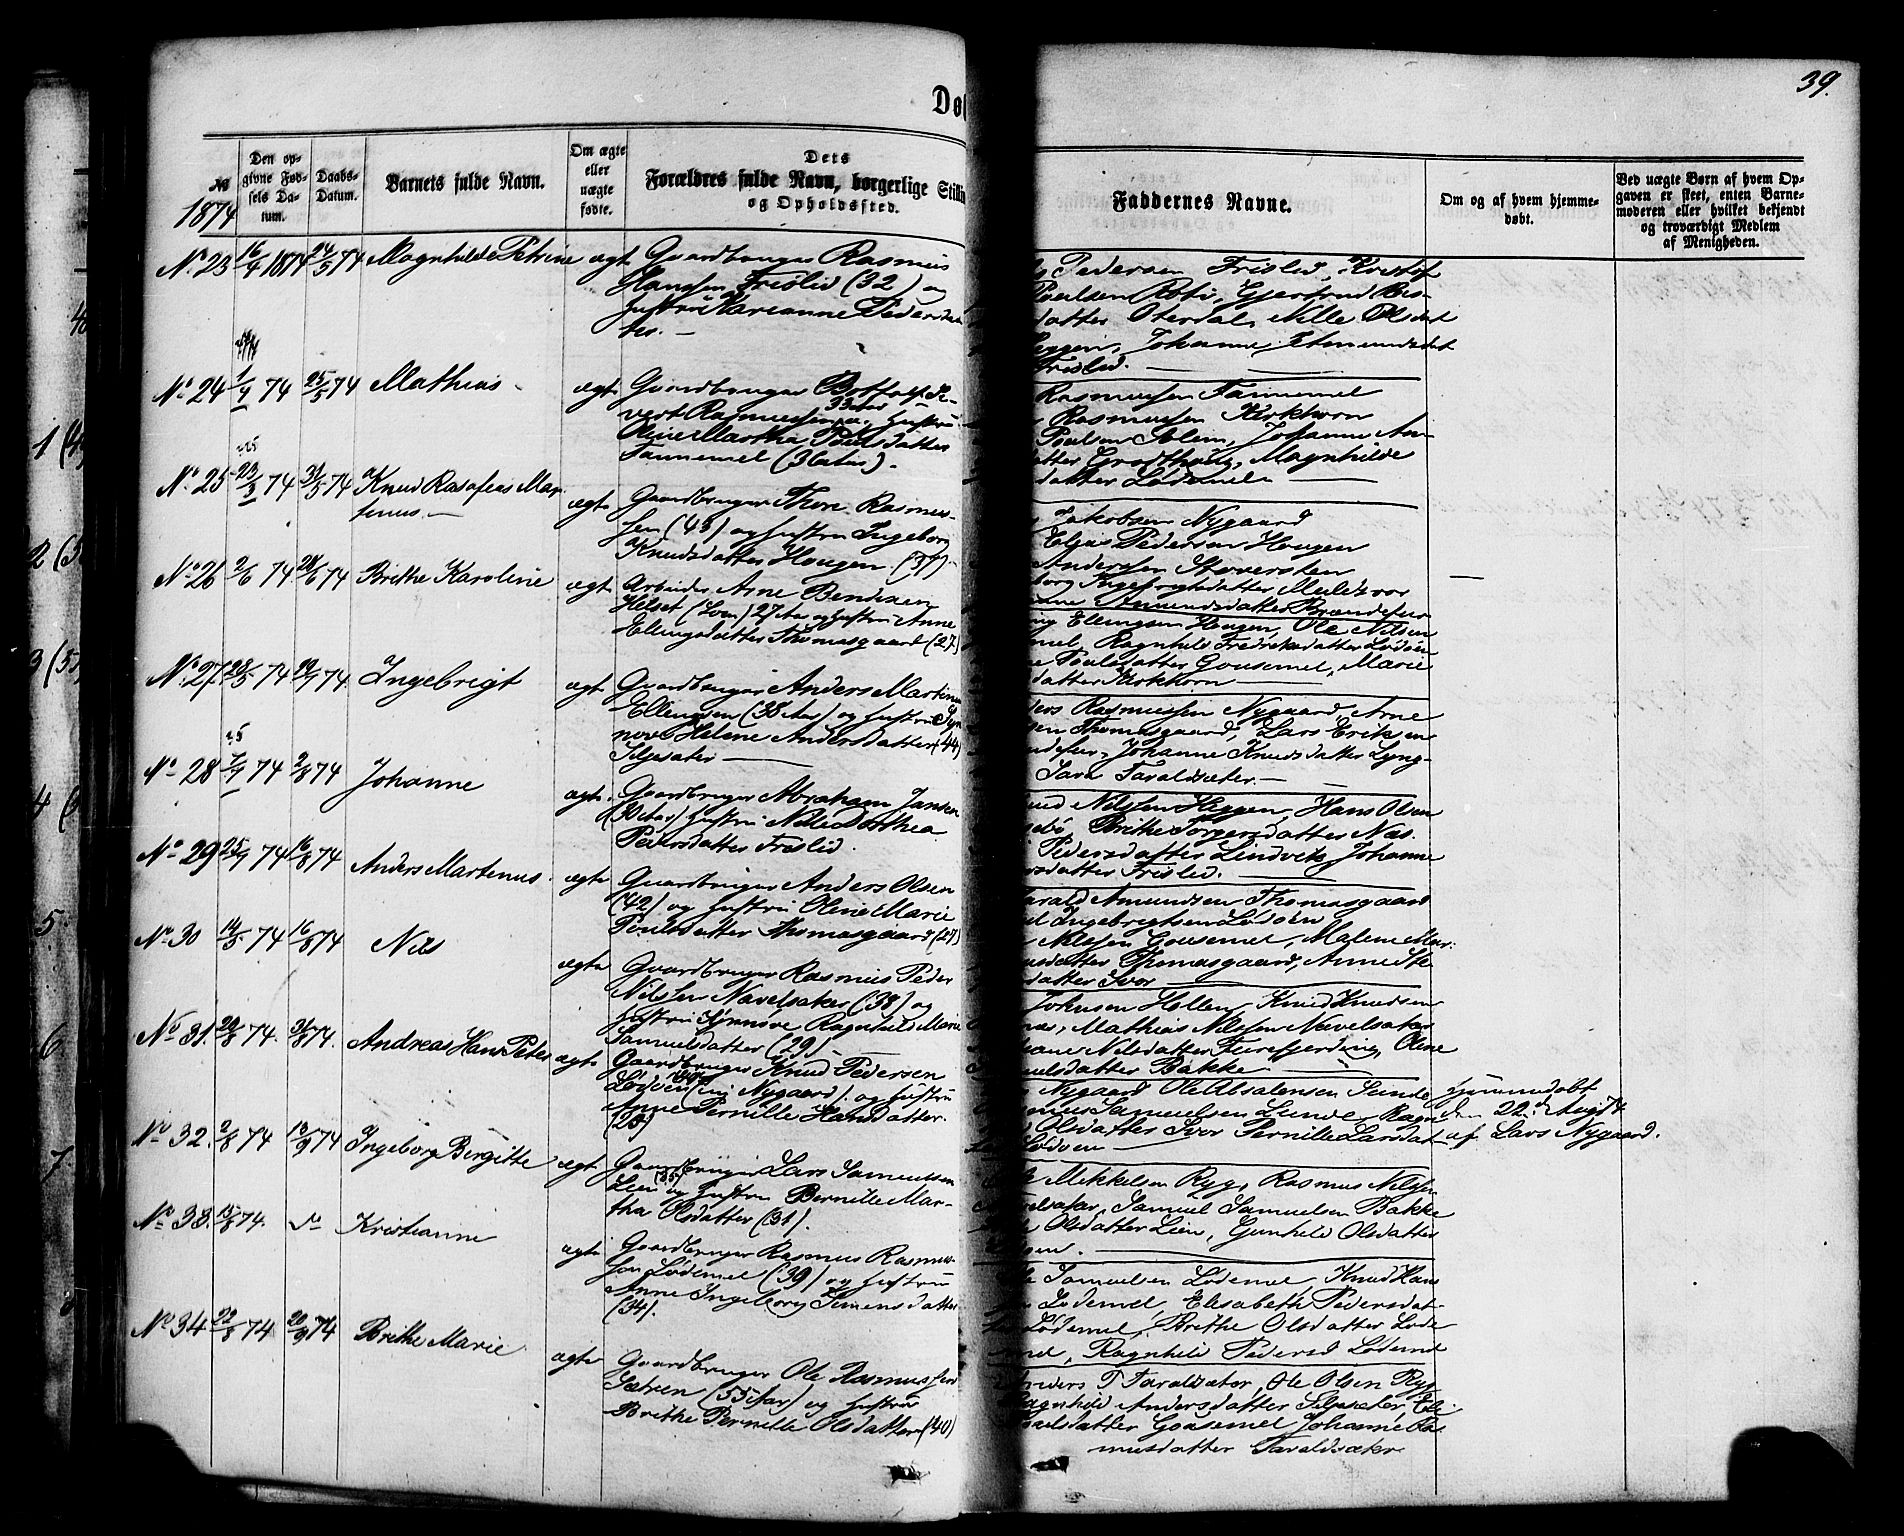 39.
Dø
№
1874
Den op-
givne Fød-
sels Da-
tum.
Daabs-
Datum.
Barnets fulde Navn.
Om ægte
eller
uægte
fødte.
Dets
Forældres fulde Navn, borgerlige Stilli
og Opholdssted.
Faddernes Navne.
Om og af hvem hjemme-
døbt.
Ved uægte Børn af hvem Op-
gaven er skeet, enten Barne-
moderen eller hvilket bekjendt
og troværdigt Medlem
af Menigheden.
No 23 16/4 1874 24/5 74 Magnhilde Petrine ægt Gaardbruger Rasmus
Hansen Frislid (32) og
Hustru Karianne Pedersdat-
ter. —
Pedersen Frislid, Kristof
Poulsen Roti, Gjertrud Ras-
datter Oterdal, Nille Olsdat
Johanne
Frislid. —
No 24 1/4 74 25/5 74 Mathias ægt Gaardbruger Botholf Si-
vert Rasmussen 33 aar og Hustru
Oline Martha Pouls datter
Fannemel (36 aar).
Rasmussen Fannemel
Rasmussen Kirkhorn
Poulsen Solem, Johanne An-
datter Grodthaug, Magnhilde
datter Lødemel —
No 25 23/3 74 31/5 74 Knud Rasofias Mar-
tinus — ægte Gaardbruger Thore Rasmus-
sen (43) og Hustru Ingeborg
Knudsdatter Hougen (37).
Jakobsen Nygaard
Elias Pedersen Hougen
Andersen Stoversten
borg Ingebrigtsdatter Melkevor
Amundsdatter Brændefur
No 26 2/6 74 28/6 74 Brithe Karoline ægt Arbeider Arne Bendixen
Helset (Loen) 27 Aar og Hustru Anne
Ellingsdatter Thomasgaard (27)
Ellingsen Hougen, Ole Nilsen
mel, Ragnhild Fredriksdatter Lødøen
Poulsdatter Gousemel, Marie
datter Kirkhorn —
No 27 28/5 74 19/7 74 Ingebrigt ægt Gaardbruger Anders Martinus
Ellingsen (38 Aar) og Hustru Syn-
nøve Helene Andersdatter (44)
Siljesæter —
ders Rasmussen Nygaard, Arne
sen Thomasgaard, Lars Eriksen
ndefur, Johanne Knudsdatter Lyng-
Sara Taraldsæter. —
No 28 7/7 74 2/8 74 Johanne ægte Gaardbruger Abraham Jansen
(30 Aar) Hustru Nille Dorthea
Pedersdatter Frislid.
Nilssen Heggen, Hans Olsen
Brithe Torgersdatter Næs.
Pedersdatter Lindvik, Johanne
rsdatter Frislid. —
No 29 25/7 74 16/8 74 Anders Martinus. ægte Gaardbruger Anders Olsen
(42) og Hustru Oline Marie
Poulsdatter Thomasgaard (27)
arald Amundsen Thomasgaard
Ingebrigtsen Lødøen
Nilssen Gousemel, Malene Mar-
datter Thomasgaard, Anne Ste
datter Svor
No 30 14/8 74 16/8 74 Nils ægte Gaardbruger Rasmus Peder
Nilssen Navelsaker (38) og
Hustru Synnøve Ragnhild Marie
Samuelsdatter (29) —
Johnsen Hollen, Knud Knudsen
Mathias Nilssen Nævelsaker
Nilsdatter Furefjerding, Oline
datter Bakke. —
No 31. 20/8 74. 31/8 74. Andreas Hans Peter ægte Gaardbruger Knud Pedersen
Lødøen (fra Nygaard). og Hustru
Anne Pernille Hansdatter.
(25)
Nygaard Ole Absalonsen Sunde
Samuelsen Lunde, Ragn
Olsdatter Svor Pernille Larsdat-
Lødøen —
Hjemmedøbt
den 22de Aug 74
af Lars Nygaard.
No 32. 2/8 74 13/9 74 Ingeborg Bergitte ægt Gaardbruger Lars Samuelsen
Lien (35) og Hustru Bernille Mar-
tha Olsdatter (31).
Mikkelsen Ryg, Rasmus Nilsen
elsaker, Samuel Samuelsen Bakke
Olsdatter Lien, Gunhild Olsdatter
No 33. 15/8 74. do Kristianne ægte Gaardbruger Rasmus Rasmus-
sen Lødemel (39) og Hustru
Anne Ingeborg Simensdatter
(34).
Samuelsen Lødemel, Knud Hans
Lødemel, Elisabeth Pedersdat-
Lødemel, Brithe Olsdatter Løde
mel, Ragnhild Pedersd Lødemel
No 34 22/8 74 20/9 74 Brithe Marie ægte Gaardbruger Ole Rasmussen
Sætren (55 Aar) og Hustru
Brithe Pernille Olsdatter (40)
Anders T Taraldsæter, Ole Olsen Ryg
Ragnhild Andersdatter Siljesæter, Eli-
Poulsdatter Gousemel Johanne Ras
musdatter Taraldsæter